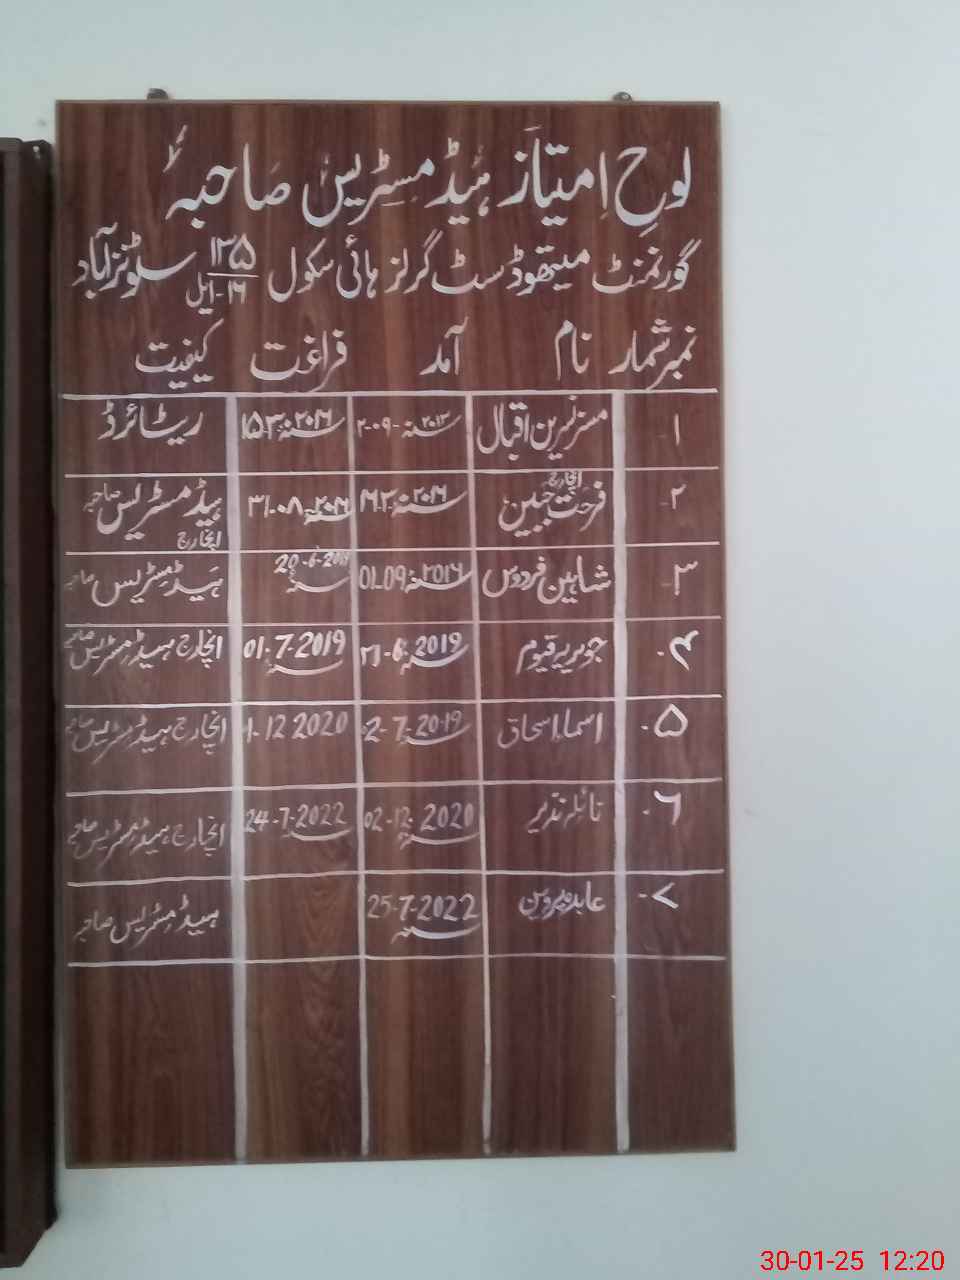 لوحِ امتیاز ہیڈ مسٹریس صاحبہ
گورنمنٹ میتھوڈسٹ گرلز ہائی سکول ۱۳۵/۱۶-ایل سلونزآباد
نمبر شمار نام آمد فراغت کیفیت
۱- مسز نسرین اقبال ریٹائرڈ
۲- فرحت جبیں انچارج ۳۱-۰۸-۲۰۱۶ ہیڈ مسٹریس صاحبہ انچارج
۳- شاہین فردوس 01-09-۲۰۱۶ ہیڈ مسٹریس صاحبہ
۴- جویریہ قیوم 21-6-2019 01-7-2019 انچارج ہیڈ مسٹریس صاحبہ
۵- اسماء اسحاق 02-7-2019 1-12-2020 انچارج ہیڈ مسٹریس صاحبہ
۶- نائلہ نذیر 02-12-2020 24-7-2022 انچارج ہیڈ مسٹریس صاحبہ
۷- عابدہ پروین 25-7-2022 ہیڈ مسٹریس صاحبہ
30-01-25 12:20